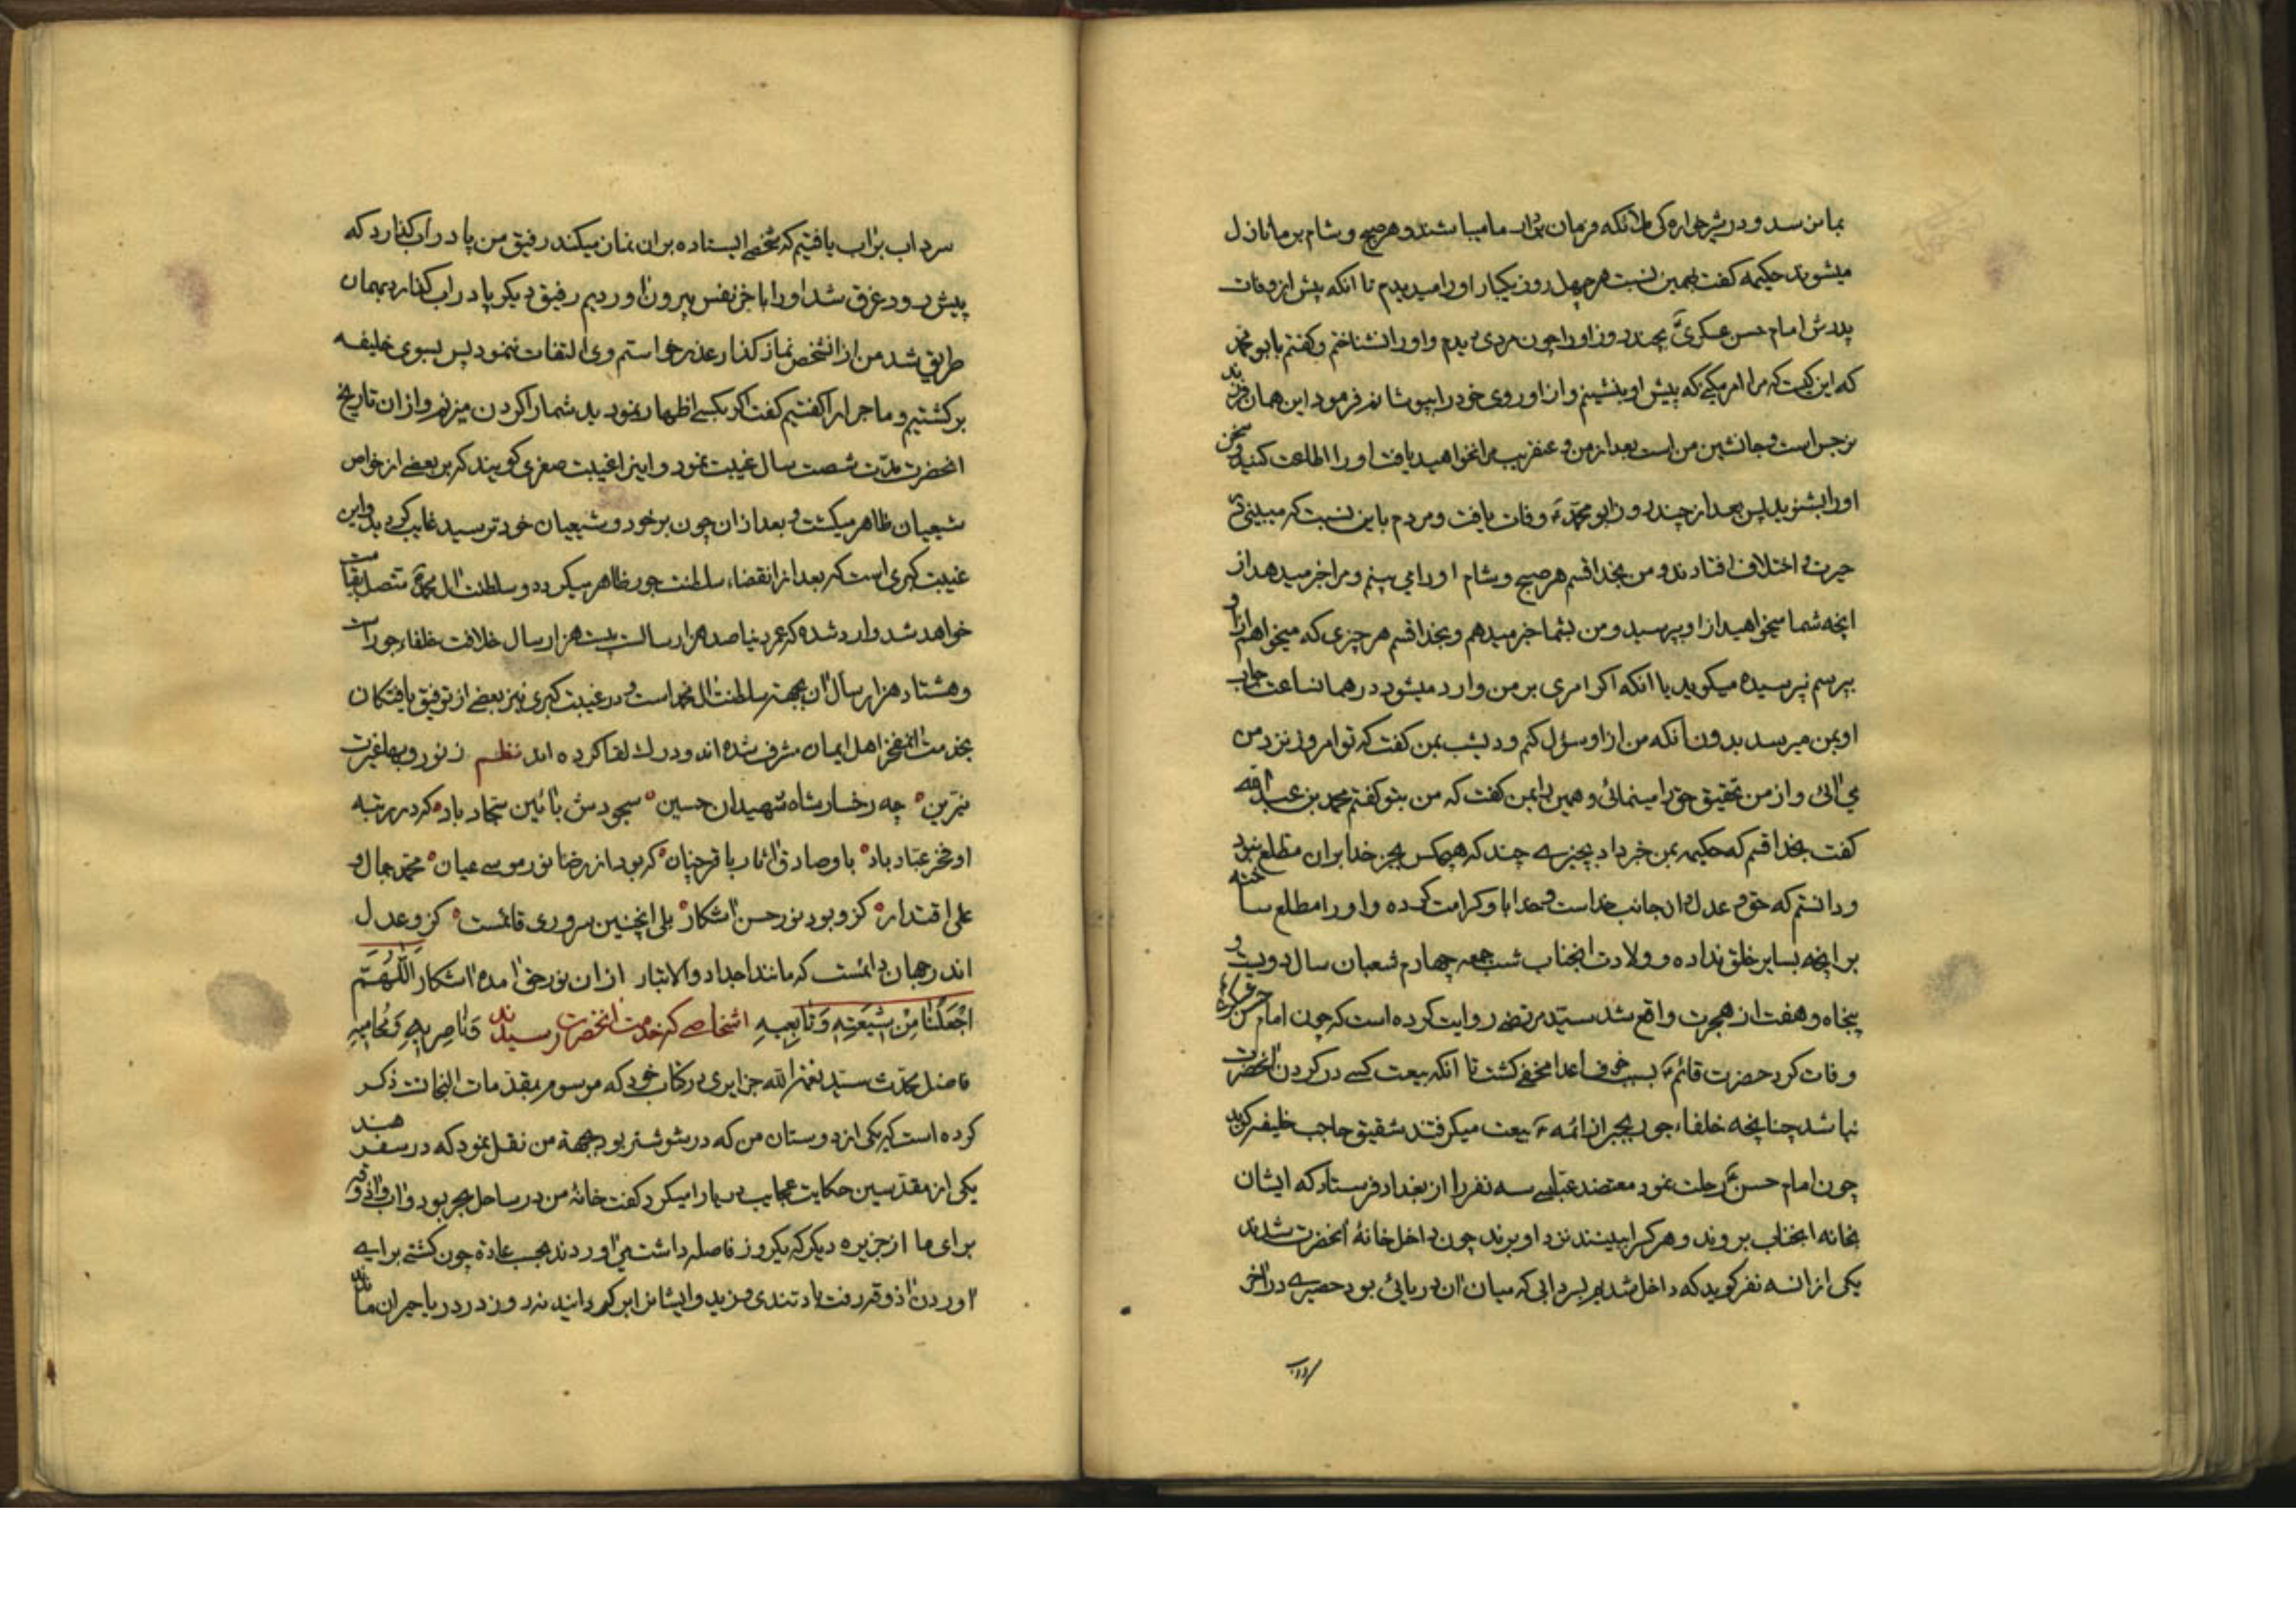 بما نرسد و در شیرخوارگی ملائکه فرمان بردار ما میباشند و هر صبح و شام بر ما نازل
میشوند حکیمه کفت بهمین نسبت هر چهل روز یکبار او را میدیدم تا انکه پیش از وفات
پدرش امام حسن عسکری ع بچند روز او را چون مردی دیدم و او را نشناختم و کفتم بابو محمد
که این کیست که مرا امر میکنے که پیش او بنشینم و از او روی خود را بپوشانم فرمود این همان فرزند
نرجس است و جانشین من است بعد از من و عنقریب مرا نخواهید یافت او را اطاعت کنید و سخن
او را بشنوید پس بعد از چند روز ابو محمد ع وفات یافت و مردم باین نسبت که میبینی در
حیرت و اختلاف افتادند و من بخدا قسم هر صبح و شام او را می بینم و مرا خبر میدهد از
انچه شما میخواهید از او بپرسید و من بشما خبر میدهم و بخدا قسم هر چیزی که میخواهم از او
بپرسم نپرسیده میکوید یا انکه اکر امری بر من وارد میشود در همانساعت جواب
او بمن میرسد بدون انکه من از او سؤل کنم و دیشب بمن کفت که تو امروز نزد من
می ائی و از من تحقیق حق را مینمائی و همین را بمن کفت که من بتو کفتم محمد بن عبدالله
کفت بخدا قسم که حکیمه بمن خبر داد بچیزے چند که هیچکس بجز خدا بران مطلع نبود
و دانستم که حق و عدل از جانب خداست و خدا باو کرامت کرده و او را مطلع ساخته
بر انچه بسایر خلق نداده و ولادت انجناب شب جمعه چهاردم شعبان سال دویست و
پنجاه و هفت از هجرت واقع شد سید مرتضے روایت کرده است که چون امام حسن
وفات کرد حضرت قائم ع بسبب خوف اعدا مخفے کشت تا انکه بیعت کسے در کردن انحضرت
نباشد چنانچه خلفاء جور بجبر از ائمه ع بیعت میکرفتند شقیق حاجب خلیفه کوید
چون امام حسن ع رحلت نمود معتضد عباسے سه نفر را از بغداد فرستاد که ایشان
بخانه انجناب بروند و هر کرا ببینند نزد او برند چون داخل خانهٔ انحضرت شدند
یکی از انسه نفر کوید که داخل شدیم بسردابی که میان ان دریائی بود حصیرے در اخر
سرداب بر اب یافتیم که شخصے ایستاده بران نماز میکند رفیق من پا در اب کذارد که
پیش رود غرق شد او را باخر نفس بیرون اوردیم رفیق دیکر پا در اب کذارد بهمان
طریق شد من از انشخص نماز کذار عذر خواستم وی التفات ننمود پس بسوی خلیفه
برکشتیم و ماجرا را کفتیم کفت اکر بکسے اظهار نمودید شما را کردن میزنم و از ان تاریخ
انحضرت مدت شصت سال غیبت نمود و اینرا غیبت صغری کویند که بر بعضے از خواص
شیعیان ظاهر میکشت و بعد از ان چون بر خود و شیعیان خود ترسید غایب کردید و این
غیبت کبری است که بعد از انقضاء سلطنت جور ظاهر میکردد و سلطنت ال محمد ع متصل بقیامت
خواهد شد وارد شده که عمر دنیا صد هزار سالست بیست هزار سال خلافت خلفاء جور است
و هشتاد هزار سال ان بجهة سلطنت ال محمد است و در غیبت کبری نیز بعضے از توفیق یافتکان
بخدمت انمفخر اهل ایمان مشرف شده اند و درک لقا کرده اند نظم ز نور و بها غیرت
نیّرین چه رخسار شاه شهیدان حسین سجودش بائین سجاد باد که در رتبه
او فخر عباد باد باو صادق اثار باقر چنان که بود از رضا نور موسے عیان محمد جمال و
علی اقتدار کزو بود نور حسن اشکار بلی انچنین سروری قائمست کزو عدل
اندر جهان دائمست که مانند اجداد والاتبار از ان نور حق امده اشکار اَللّٰهُمَّ
اجْعَلْنَا مِنْ شِیعَتِهِ وَتَابِعِیهِ وَنَاصِرِیهِ وَمُحَامِیهِ اشخاصے که خدمت انحضرت رسیدند
فاضل محدث سید نعمة الله جزایری در کتاب خود که موسوم بمقدمات النجات ذکر
کرده است که یکی از دوستان من که در شوشتر بود بجهة من نقل نمود که در سفر هند
یکی از مقدسین حکایت عجایب دریا را میکرد کفت خانهٔ من در ساحل بحر بود و اب و اذوقه
برای ما از جزیره دیکر که یکروز فاصله داشت می اوردند بحسب عادة چون کشتے برایے
اوردن اذوقه رفت باد تندی وزید و ایشانرا برکردانید نه روز در دریا حیران ماندند